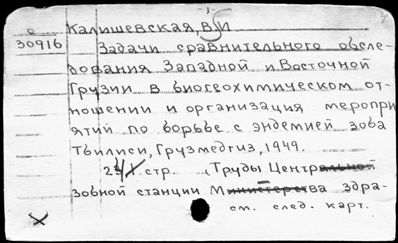 -1-
о Калишевская, В И
30916 Задачи сравнительного обсле-
дования Западной и Восточной
Грузии в биогеохимическом от-
ношении и организация меропри
ятий по борьбе с эндемией зоба
Тбилиси, Грузмедгиз, 1949.
стр. Труды Центральной
зобной станции Министерства здра-
см. след. карт.